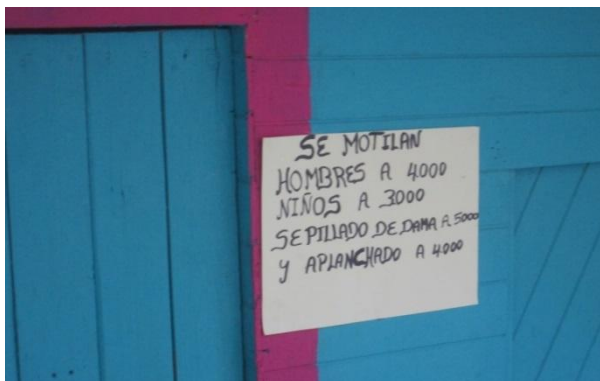 SE MOTILAN
HOMBRES A 4.000
NIÑOS A 3000
SEPILLADO DE DAMA A 5000
Y APLANCHADO A 4000